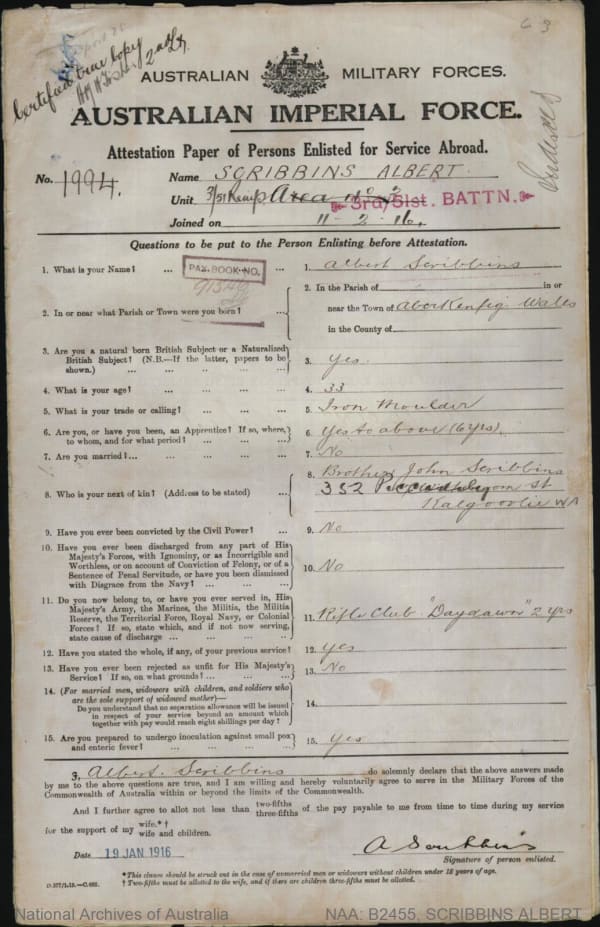 63
Certified true copy
2nd Lt
AUSTRALIAN MILITARY FORCES.
AUSTRALIAN IMPERIAL FORCE.
Attestation Paper of Persons Enlisted for Service Abroad.
No. 1994. Name SCRIBBINS ALBERT.
Unit 3/51 Reinf Area No 2 3rd/51st. BATTN.
Joined on 11-2-16.
Questions to be put to the Person Enlisting before Attestation.
1. What is your Name? ... PAY. BOOK NO. ... 1. Albert Scribbins
2. In or near what Parish or Town were you born? 2. In the Parish of in or
near the Town of Aberkenfig Wales
in the County of
3. Are you a natural born British Subject or a Naturalized
British Subject? (N.B.—If the latter, papers to be
shown.) ... ... 3. Yes.
4. What is your age? ... ... ... ... 4. 33
5. What is your trade or calling? ... ... ... 5. Iron Moulder
6. Are you, or have you been, an Apprentice? If so, where,
to whom, and for what period? ... ... ... 6. Yes to above (6 yrs).
7. Are you married? ... ... ... ... ... 7. No
8. Who is your next of kin? (Address to be stated) ... 8. Brother John Scribbins
352 Piccadilly St
Kalgoorlie WA
9. Have you ever been convicted by the Civil Power? ... 9. No
10. Have you ever been discharged from any part of His
Majesty's Forces, with Ignominy, or as Incorrigible and
Worthless, or on account of Conviction of Felony, or of a
Sentence of Penal Servitude, or have you been dismissed
with Disgrace from the Navy? ... ... ... 10. No
11. Do you now belong to, or have you ever served in, His
Majesty's Army, the Marines, the Militia, the Militia
Reserve, the Territorial Force, Royal Navy, or Colonial
Forces? If so, state which, and if not now serving,
state cause of discharge ... ... ... ... 11. Rifle Club "Daydawn" 2 yrs
12. Have you stated the whole, if any, of your previous service? 12. Yes
13. Have you ever been rejected as unfit for His Majesty's
Service? If so, on what grounds? ... ... ... 13. No
14. (For married men, widowers with children, and soldiers who
are the sole support of widowed mother)—
Do you understand that no separation allowance will be issued
in respect of your service beyond an amount which
together with pay would reach eight shillings per day? 14.
15. Are you prepared to undergo inoculation against small pox
and enteric fever? ... ... ... ... 15. Yes
I, Albert Scribbins do solemnly declare that the above answers made
by me to the above questions are true, and I am willing and hereby voluntarily agree to serve in the Military Forces of the
Commonwealth of Australia within or beyond the limits of the Commonwealth.
And I further agree to allot not less than two-fifths three-fifths of the pay payable to me from time to time during my service
for the support of my wife.*† wife and children.
Date 19 JAN 1916 A Scribbins
Signature of person enlisted.
*This clause should be struck out in the case of unmarried men or widowers without children under 18 years of age.
† Two-fifths must be allotted to the wife, and if there are children three-fifths must be allotted.
National Archives of Australia NAA: B2455, SCRIBBINS ALBERT